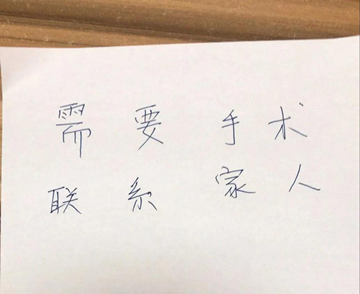 需要手术
联系家人